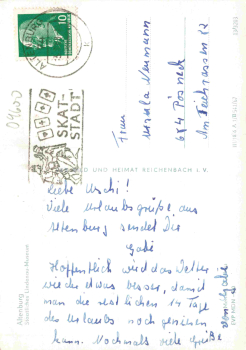 ALTENBURG
10
SKAT-
STADT
04600
Frau
Ursula Neumann
684 Pössneck
Liebe Uschi!
Viele Urlaubsgrüße aus
Altenburg sendet Dir
Gabi
Hoffentlich wird das Wetter
wieder etwas besser, damit
man die restlichen 14 Tage
des Urlaubs noch genießen
kann. Nochmals viele Grüße
von Gabi
Altenburg